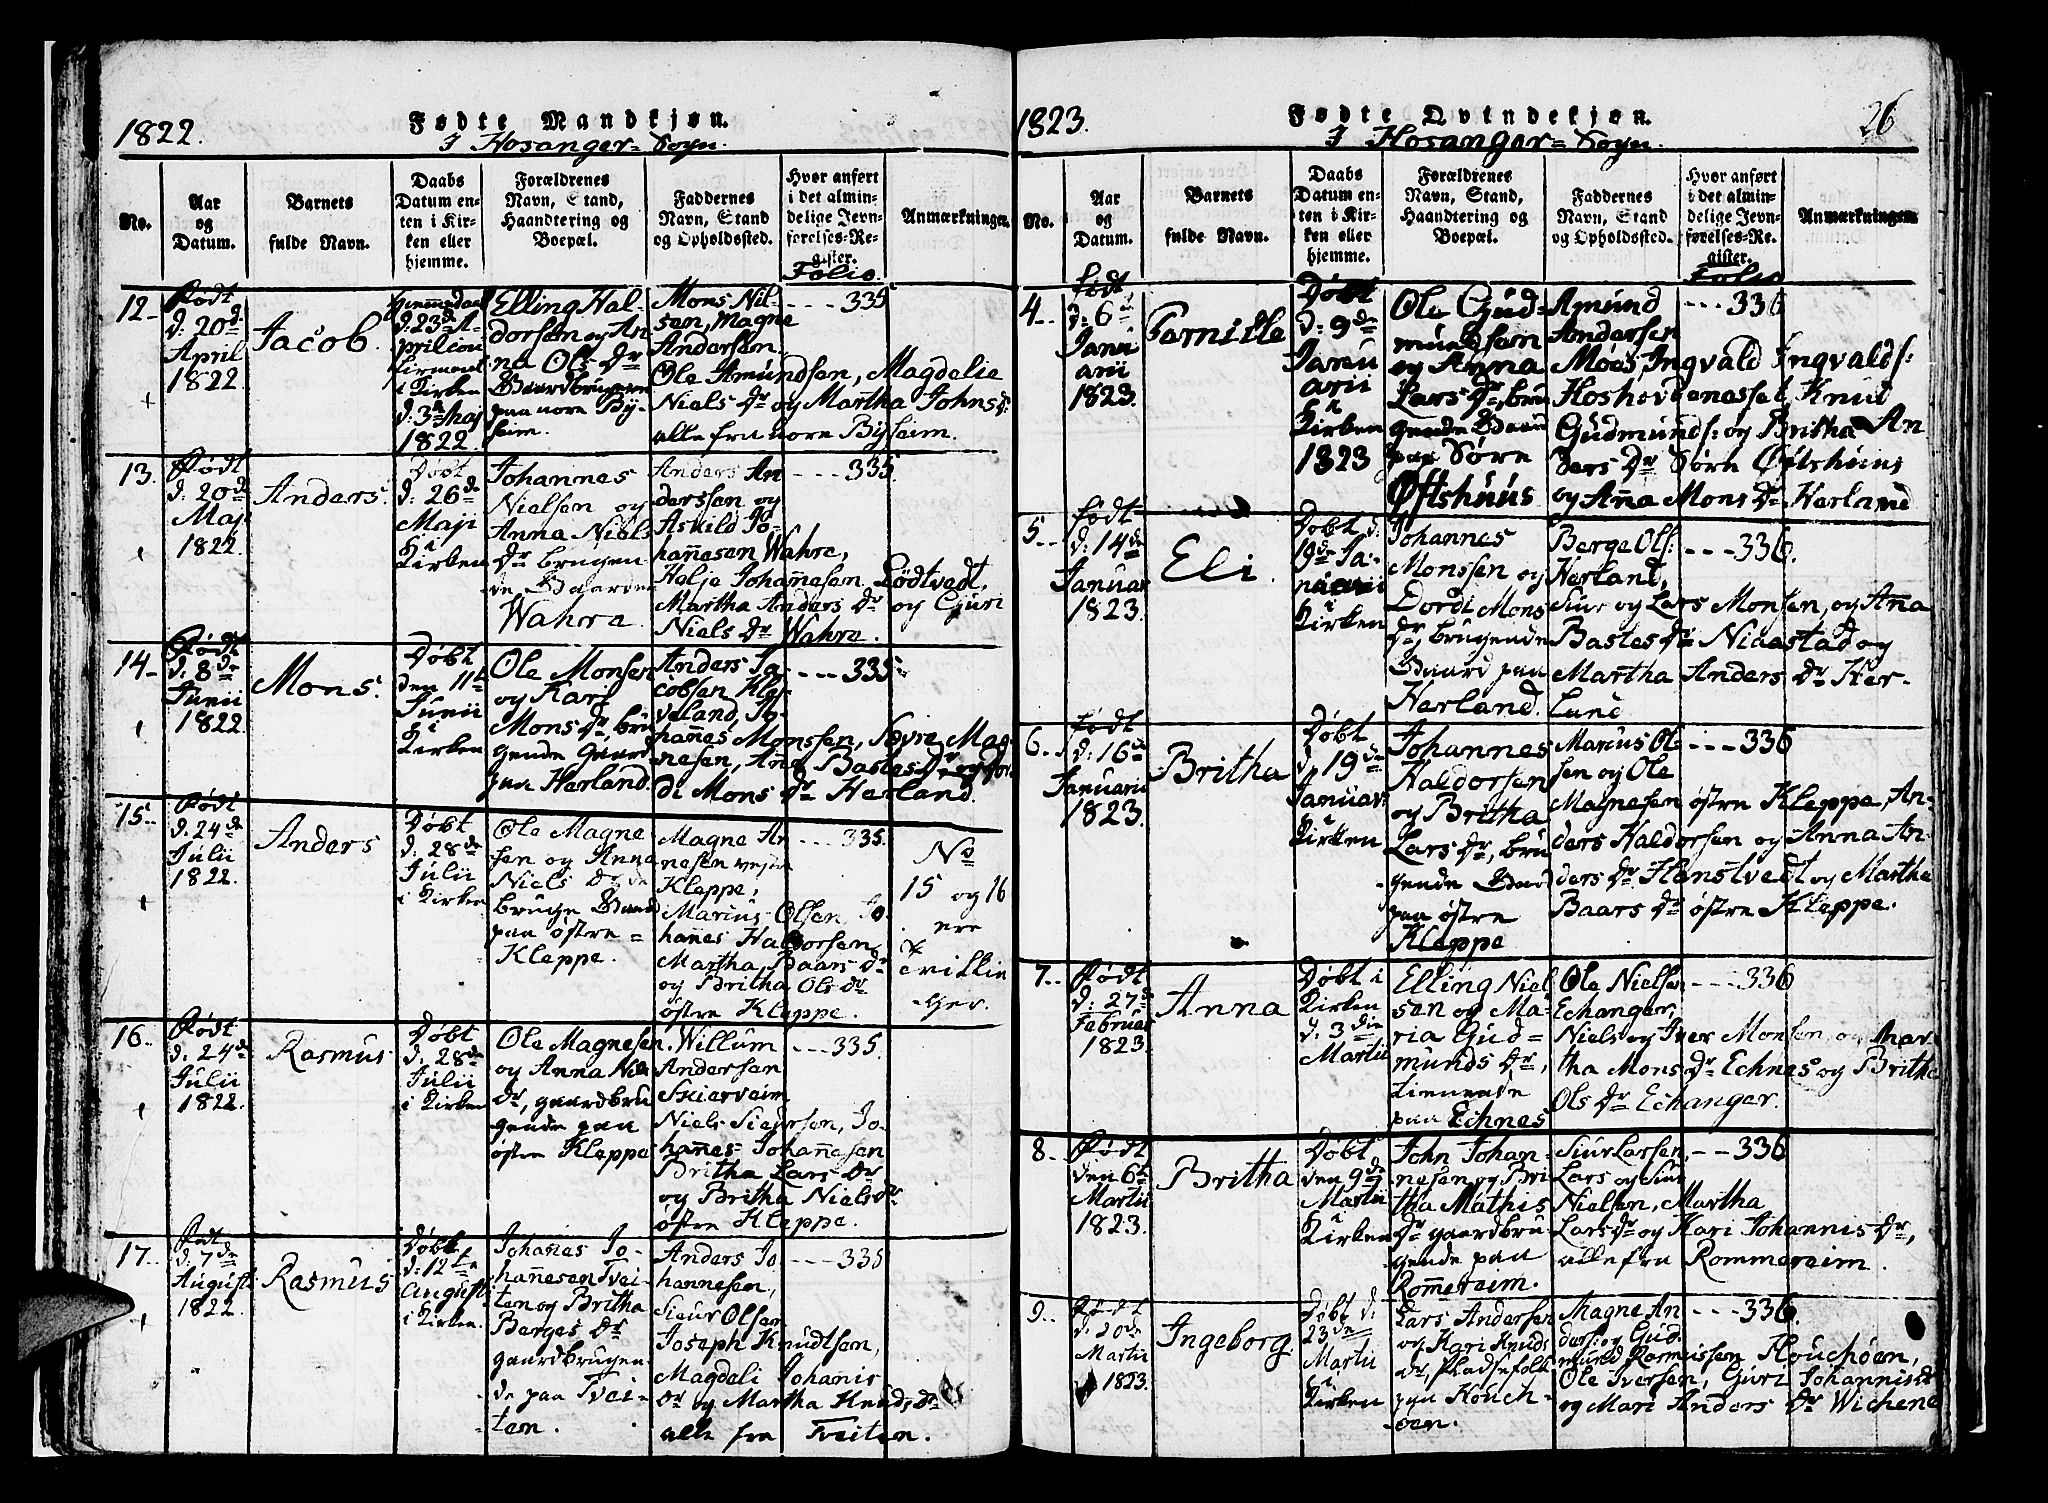 1822.
Fødte Mandkjøn.
I Hosanger= Sogn.
No.
Aar
og
Datum.
Barnets
fulde Navn.
Daabs
Datum en-
ten i Kir-
ken eller
hjemme.
Forældrenes
Navn, Stand,
Haandtering og
Boepæl.
Faddernes
Navn, Stand
og Opholdssted.
Hvor anført
i det almin-
delige Jevn-
førelses-Re-
gister.
Folio.
Anmærkninger.
12
Født
d: 20de
April
1822
Jacob.
d. 23de A-
pril
i Kirken
d: 3
1822.
Elling Hal-
dorsen og An
na Ols Dr
Gaardbrugen
paa nore By-
seim.
Mons Nil-
sen, Magne
Andersen.
Ole Amundsen, Magdelie
Niels Dr og Martha Johns Dr
alle fra nore Byseim.
---335
13.
Født
d: 20de
Maji
1822
Anders.
Døbt
d: 26de
Maji
i
Kirken
Johannes
Nielsen og
Anna Niels
Dr brugen
de Gaarden
Wahre.
Anders An
derssen og
Askild Jo-
hannesen Wahre,
Helje Johannesen Lødtvedt,
Martha Anders Dr og Guri
Niels Dr Wahre.
---335
14
Født
d: 8de
Junii
1822
Mons.
Døbt
den 11te
Junii
i
Kirken
Ole Monsen
og Kari
Mons Dr, bru
gende Gaard
paa Herland.
Anders Ja-
cobsen Kle-
veland, Jo-
hannes Monssen, Sevre Mag-
nesen, Anna Bastes Dr og Dor
di Mons Dr Herland.
---335
15
Født
d. 24de
Julii
1822
Anders
Døbt
d: 28de
Julii
i Kirken
Ole Magne
sen og Anna
Niels Dr
bruge Gaard
paa østre
Kleppe.
Magne An
nesen vestre
Kleppe,
Marius Olsen Jo
hannes Haldorsen,
Martha Baars Dr
og Britha Ols Dr
østre Kleppe.
---335.
No
15 og 16
ere
Tvillin
ger.
16
Født
d. 24de
Julii
1822
Rasmus
Døbt
d: 28de
Julii
i Kirken
Ole Magnesen
og Anna Nie
Dr, gaardbru
gende paa
østre Kleppe
Willum
Andersen
Skierveim
Niels Siursen, Jo-
hannes Johannesen
Britha Lars Dr
og Britha Niels Dr
østre Kleppe.
---335.
17
Født
d: 7de
Augusti
1822
Rasmus
Døbt
d: 12te
Augusti
i Kirken.
Johanes Jo-
hannesen Tvei-
ten og Britha
Berges Dr
gaardbrugen
de paa Tvei-
ten.
Anders Jo
hannesen,
Sieur Olsen
Joseph Knudtsen,
Magdeli Johanis
Dr og Martha Knuds Dr
alle fra Tveiten.
---335
1823.
Fødte Qvindekjøn.
I Hosanger= Sogn.
26
No.
Aar
og
Datum.
Barnets
fulde Navn.
Daabs
Datum en-
ten i Kir-
ken eller
hjemme.
Forældrenes
Navn, Stand,
Haandtering og
Boepæl.
Faddernes
Navn, Stand
og Opholdssted.
Hvor anført
i det almin-
delige Jevn-
førelses-Re-
gister.
Folio
Anmærkninger
4
født
d: 6te
Janu
arii
1823.
Parnille
Døbt
d: 9de
Janu
arii
i
Kirken
1823
Ole Gud-
mundsen
og Anna
Lars Dr, bru
gende Gaard
paa Sørre
Øftshuus
Amund
Andersen
Moes, Ingvald Ingvalds:
Hoshovdenesset, Knud
Gudmunds: og Britha An
ders Dr Sørre Øftshuus
og Anna Mons Dr Herland
---336
5
født
d: 14de
Januar
1823.
Eli
Døbt d:
19de Ja-
nuarii
i
Kirken
Johannes
Monssen og
Dordi Mons
Dr brugende
Gaard paa
Herland.
Berge Ols:
Herland,
Siur og Lars Monsen, og Anna
Bastes Dr Niaastad og
Martha Anders Dr Her-
land
---336.
6
født
d: 16de
Januarii
1823.
Britha
Døbt
d 19de
Januar
i
Kirken
Johannes
Haldorsen
og Britha
Lars Dr, bru
gende Gaard
paa østre
Kleppe
Marius Ol
sen og Ole
Magnesen østre Kleppe, An-
ders Haldorsen og Anna An-
ders Dr Hanstvedt og Martha
Baars Dr østre Kleppe.
---336
7
Født
d: 27de
Februar
1823.
Anna
Døbt i
Kirken
d. 3die
Martii
Elling Niel
sen og Ma-
ria Gud-
munds Dr,
tienende
paa Echnes
Ole Nielsen
Echanger,
Niels og Iver Monsen, og Mar
tha Mons Dr Echnes og Britha
Ols Dr Echanger.
---336
8
Født
den 6te
Martii
1823.
Britha
Døbt
den 9de
Martii
i
Kirken
John Johan-
nesen og Bri
tha Mathis
Dr gaardbru
gende paa
Romereim.
Siur Larsen,
Lars og Siur
Nielsen, Martha
Lars Dr og Kari Johannis Dr,
alle fra Rommereim.
--336
9
Født
d: 20de
Martii
1823.
Ingeborg
Døbt d:
23de
Martii
i
Kirken
Lars Andersen
og Kari Knuds
Dr, Pladsefolk
paa Houch-
øen.
Magne An
ders: og Gud
mund Rasmussen Houchøen,
Ole Iversen, Guri Johannis Dr
og Mari Anders Dr Wichene
---336.